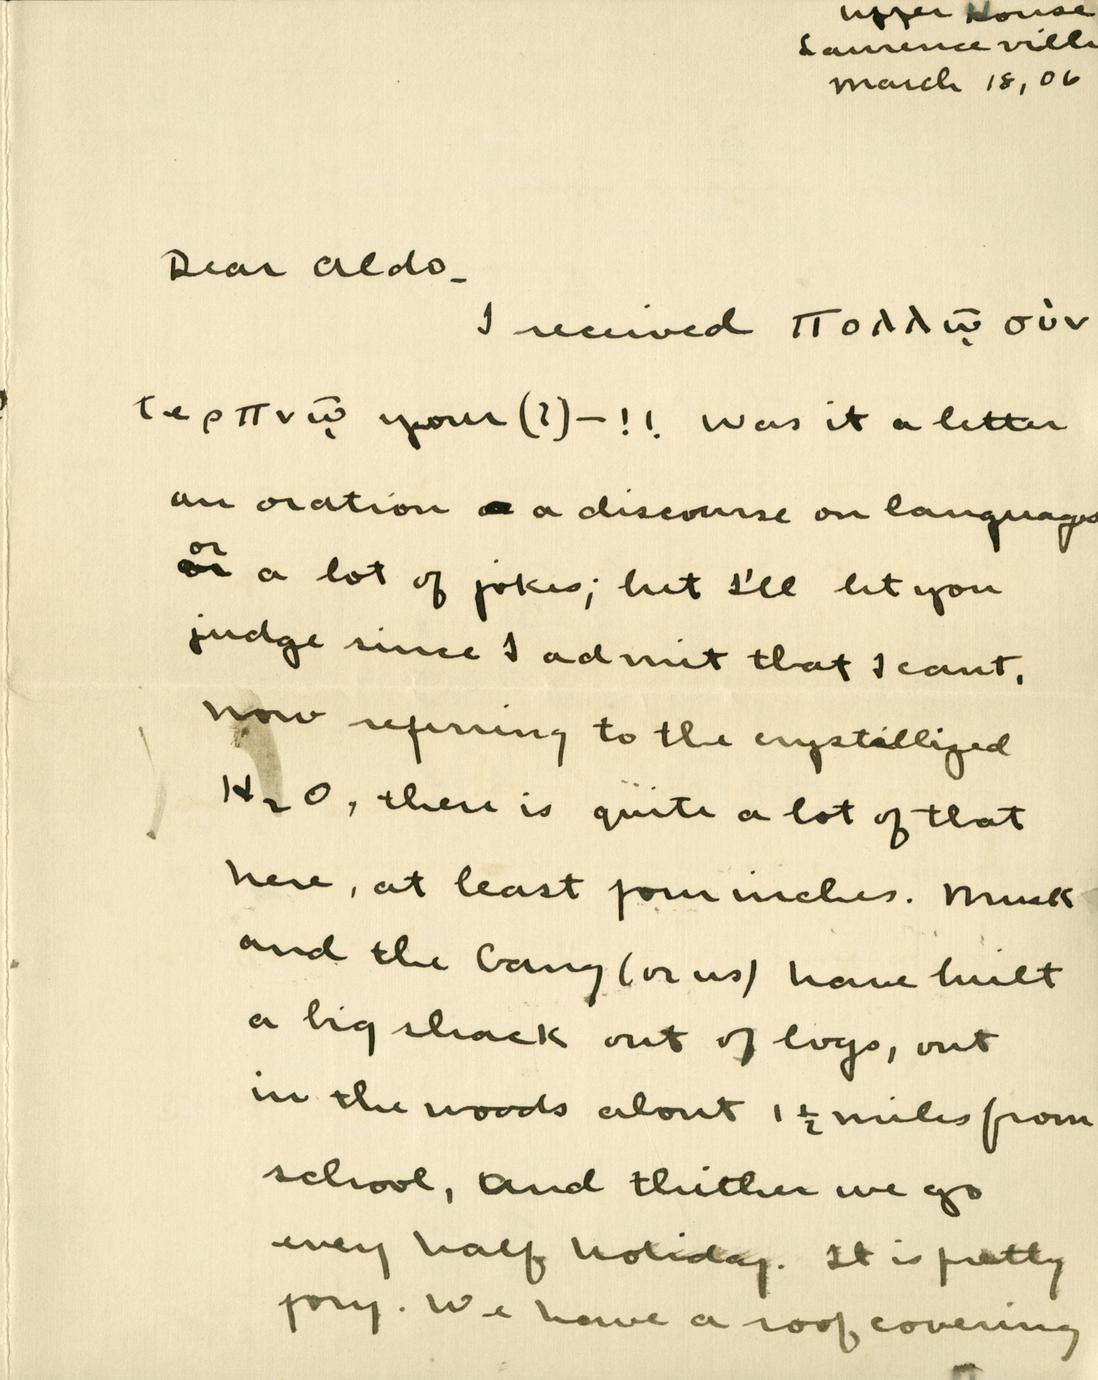 Upper House
Lawrenceville
March 18, 06
Dear Aldo_
I received πολλῷ σὺν
τερπνῷ your (?)—!! Was it a letter
an oration a discourse on languages
or a lot of jokes; but I'll let you
judge since I admit that I cant.
Now referring to the crystallized
H2O, there is quite a lot of that
here, at least four inches.
and the Gang (or us) have built
a big shack out of logs, out
in the woods about 1 1/2 miles from
school, and thither we go
every half holiday. It is pretty
We have a roof covering